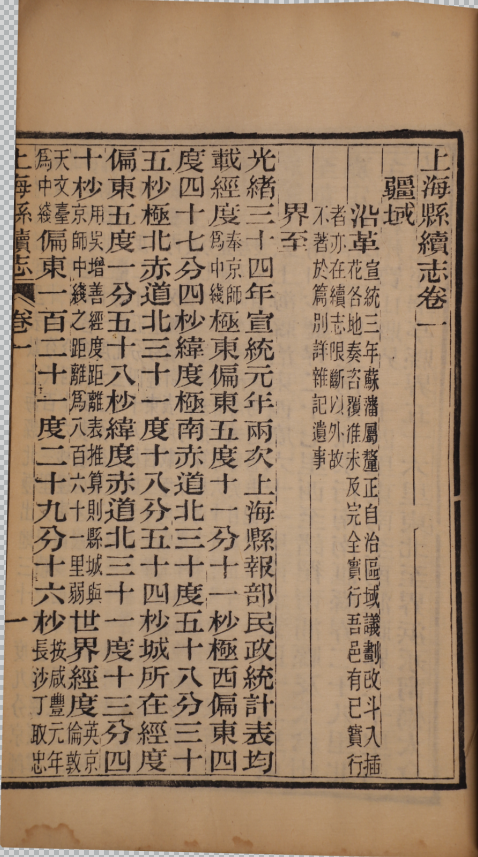 上海縣續志卷一
疆域
沿革 宣統三年蘇藩屬釐正自治區域議劃改斗入插
花各地奏咨覆准未及完全實行吾邑有已實行
者亦在續志限斷以外故
不著於篇別詳雜記遺事
界至
光緒三十四年宣統元年兩次上海縣報部民政統計表均
載經度奉京師爲中綫極東偏東五度十一分十一秒極西偏東四
度四十七分四秒緯度極南赤道北三十度五十八分三十
五秒極北赤道北三十一度十八分五十四秒城所在經度
偏東五度一分五十八秒緯度赤道北三十一度十三分四
十秒用吳增善經度距離表推算則縣城與京師中綫之距離爲八百六十一里弱世界經度英京倫敦
天文臺爲中綫偏東一百二十一度二十九分十六秒按咸豐元年長沙丁取忠
上海縣續志 卷一 一